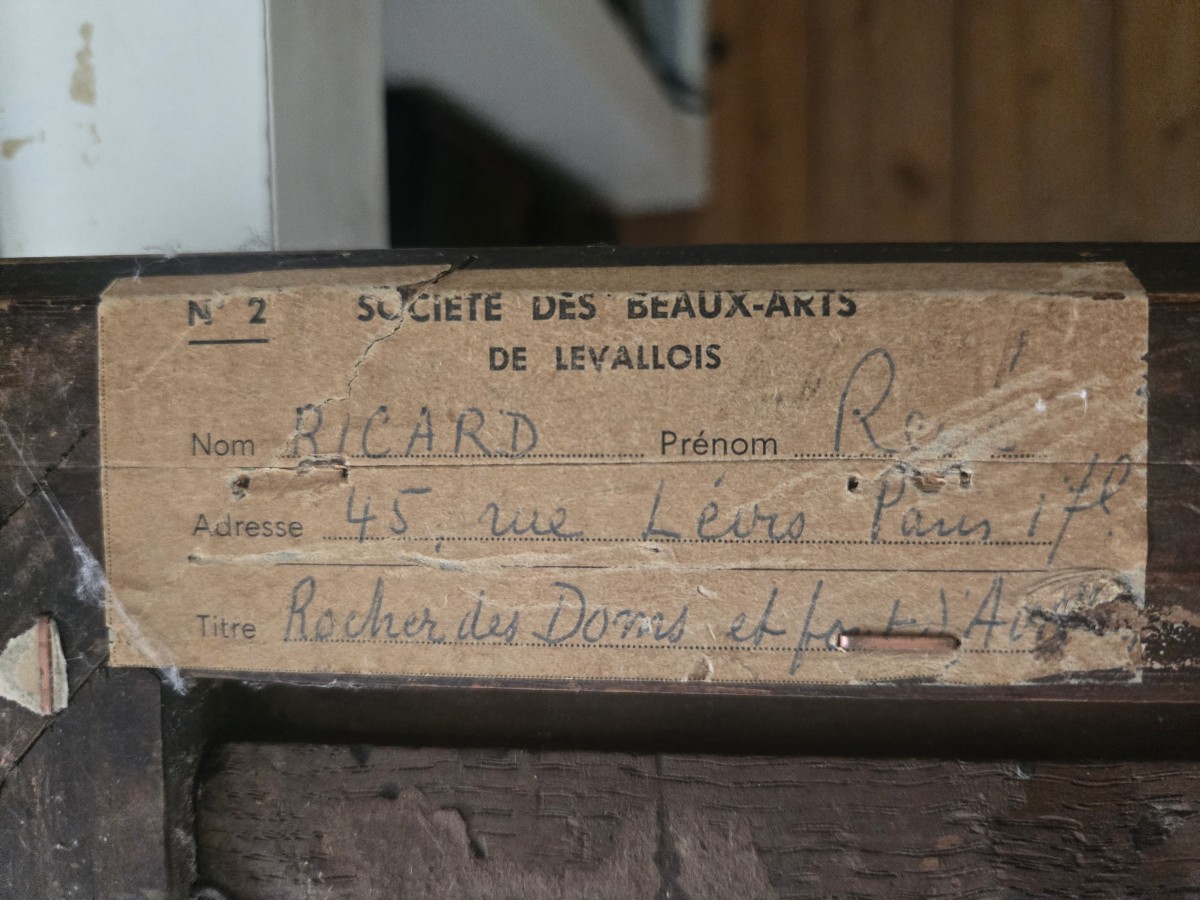 N° 2 SOCIETE DES BEAUX-ARTS
DE LEVALLOIS
Nom RICARD Prénom
Adresse 45, rue Lévis Paris 17e
Titre Rocher des Doms et